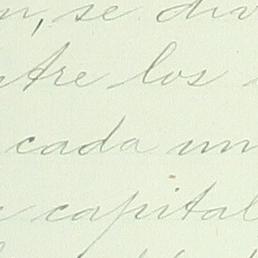 n, se div
ntre los
cada un
capital